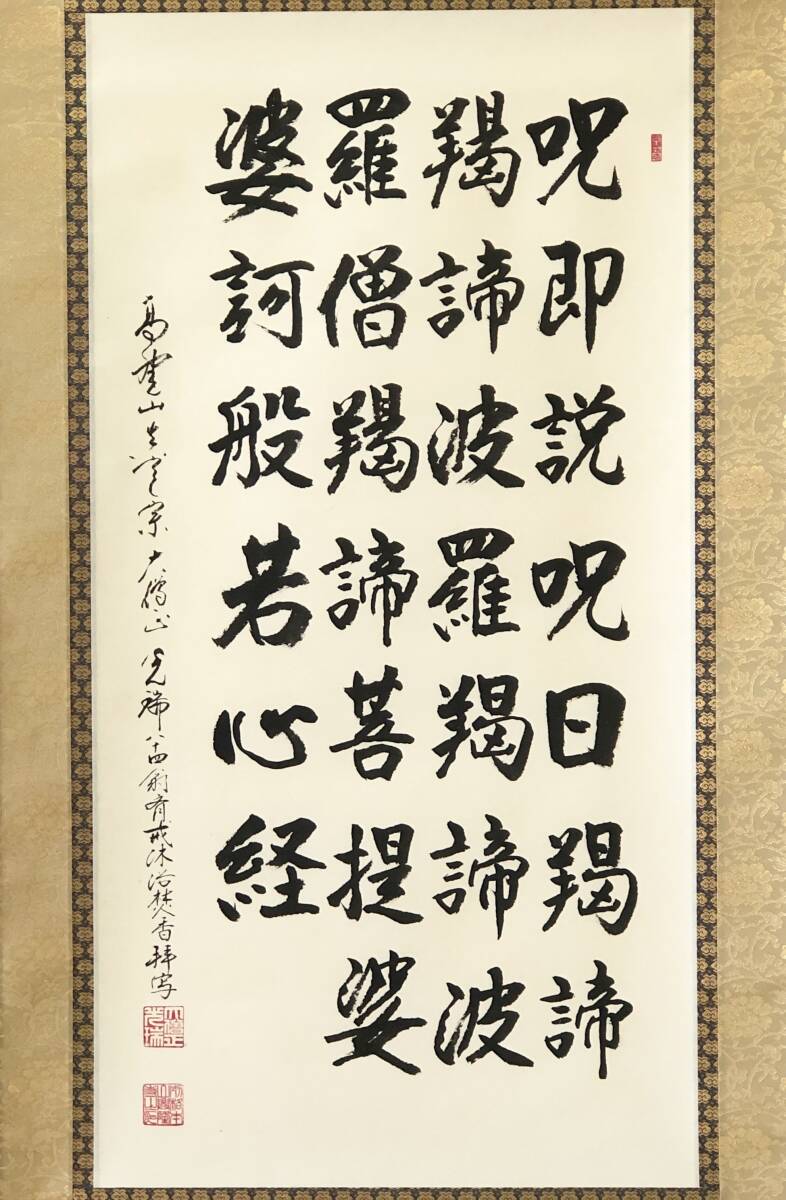 呪即説呪曰羯諦
羯諦波羅羯諦波
羅僧羯諦菩提娑
婆訶般若心経
高野山真言宗大僧正光瑞八十四翁斎戒沐浴焚香拝写
大僧正
光瑞